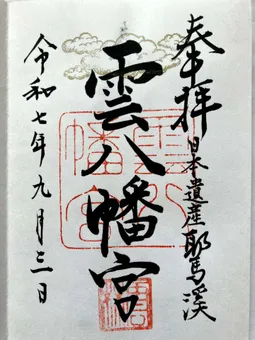 奉拝
日本遺産耶馬溪
雲八幡宮
令和七年九月三日
雲八幡宮